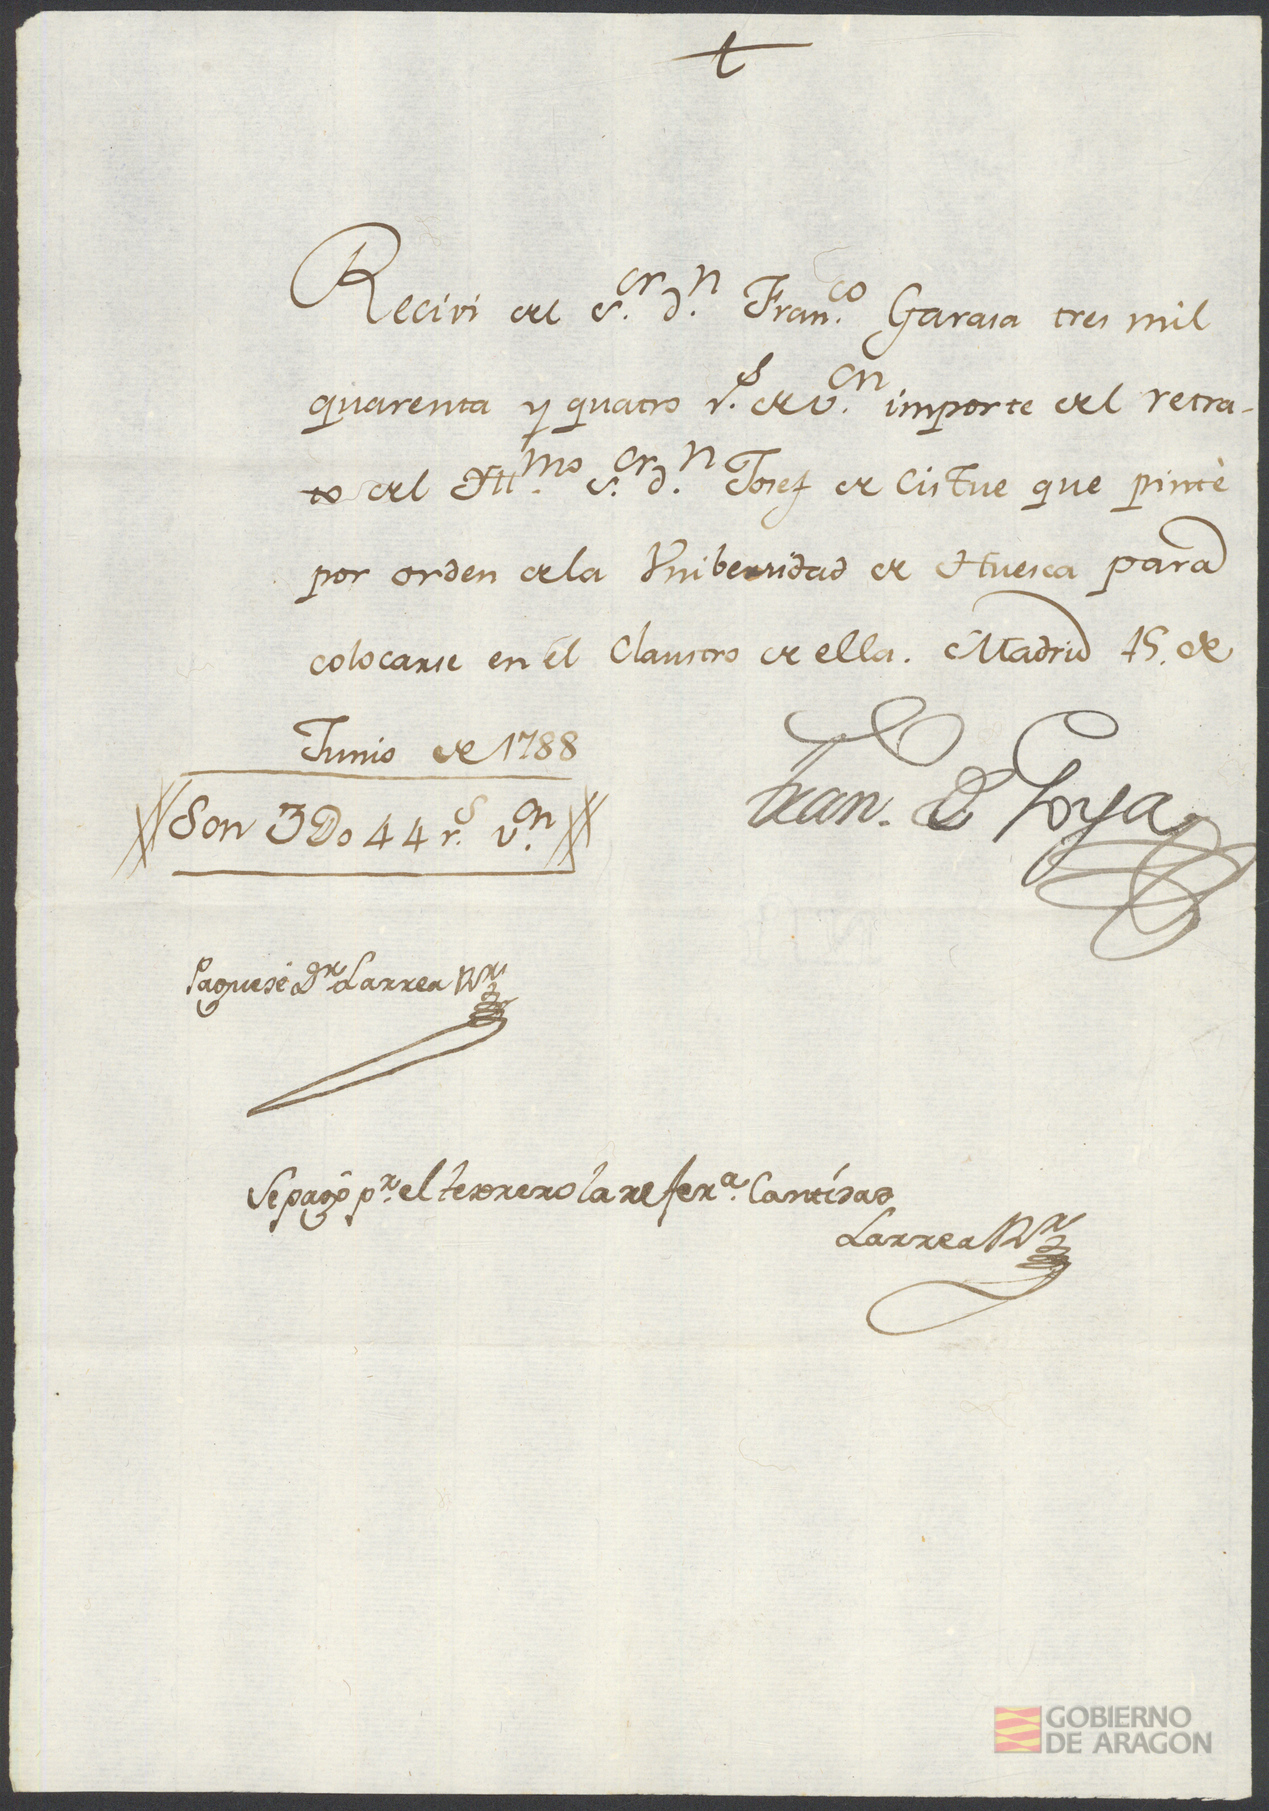 Recivi del S.or d.n Fran.co Garasa tres mil
quarenta y quatro r.s de v.on importe del retra-
to del Ill.mo S.or d.n Josef de Cistue que pintè
por orden de la Vnibersidad de Huesca para
colocarse en el Claustro de ella. Madrid 15. de
Junio de 1788
Fran. de Goya
Son 3Do44 r.s v.on
Paguese D.r Larrea R.or
Se pagó p.r el tesorero la refer.a Cantidad
Larrea R.r
GOBIERNO
DE ARAGON